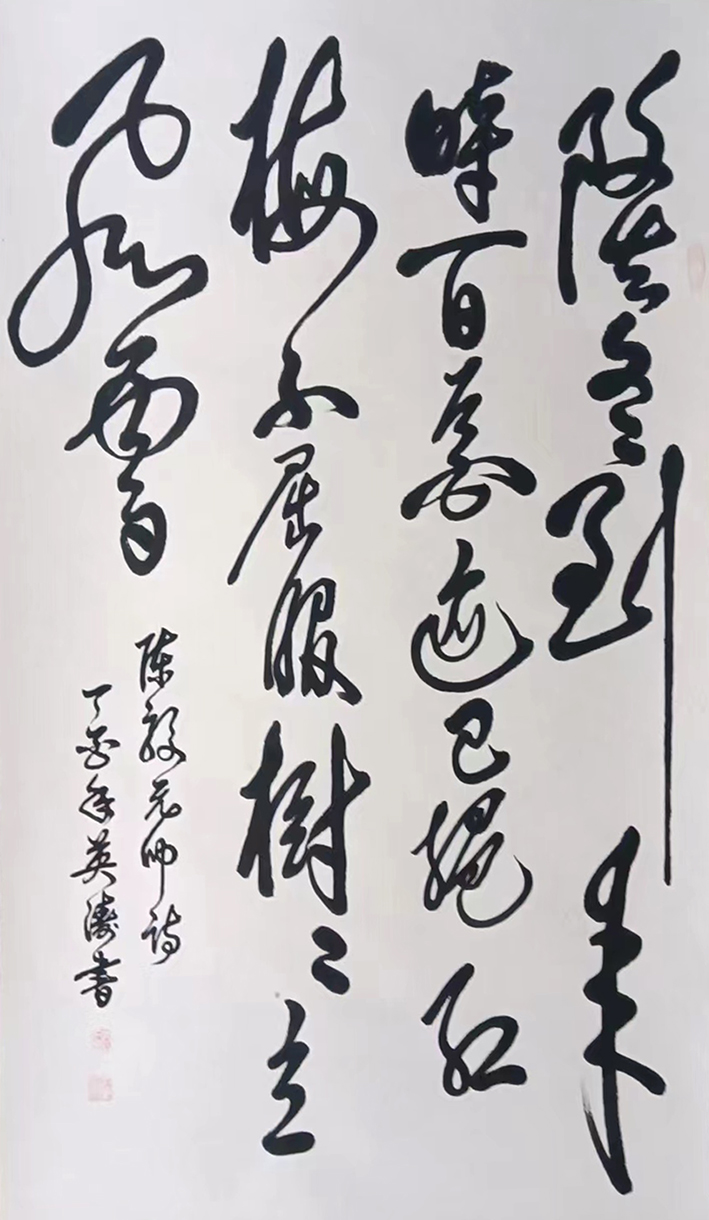 隆冬到来
時百花迹已绝红
梅不屈服樹〻立
风雪
陈毅元帅诗
丁酉年英涛書